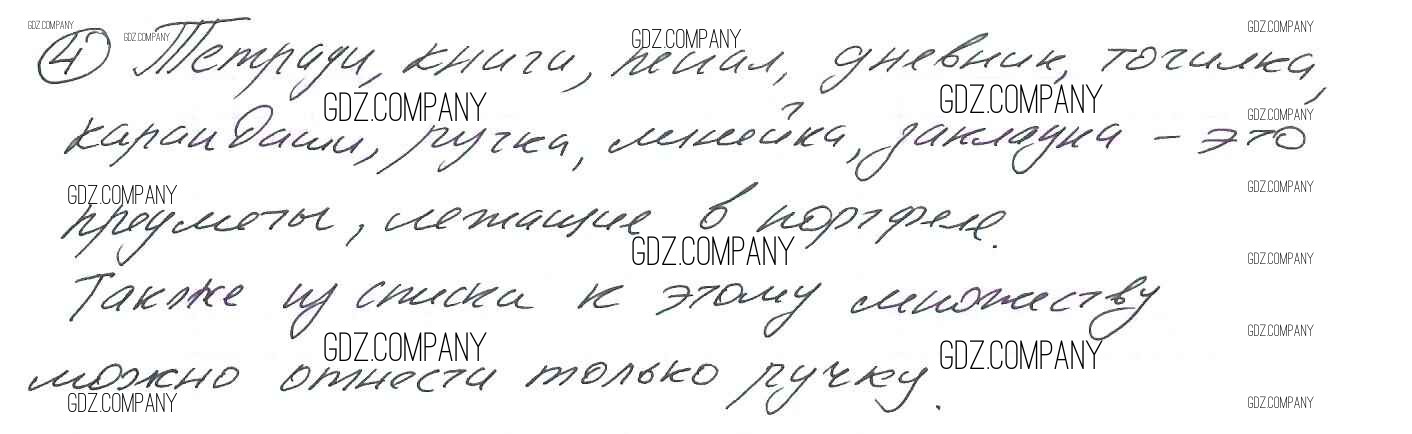 GDZ.COMPANY GDZ.COMPANY GDZ.COMPANY GDZ.COMPANY
④ Тетради, книги, пенал, дневник, точилка,
GDZ.COMPANY GDZ.COMPANY GDZ.COMPANY
карандаши, ручка, линейка, закладка – это
GDZ.COMPANY GDZ.COMPANY
предметы, лежащие в портфеле.
GDZ.COMPANY GDZ.COMPANY
Также из списка к этому множеству
GDZ.COMPANY GDZ.COMPANY GDZ.COMPANY
можно отнести только ручку.
GDZ.COMPANY GDZ.COMPANY